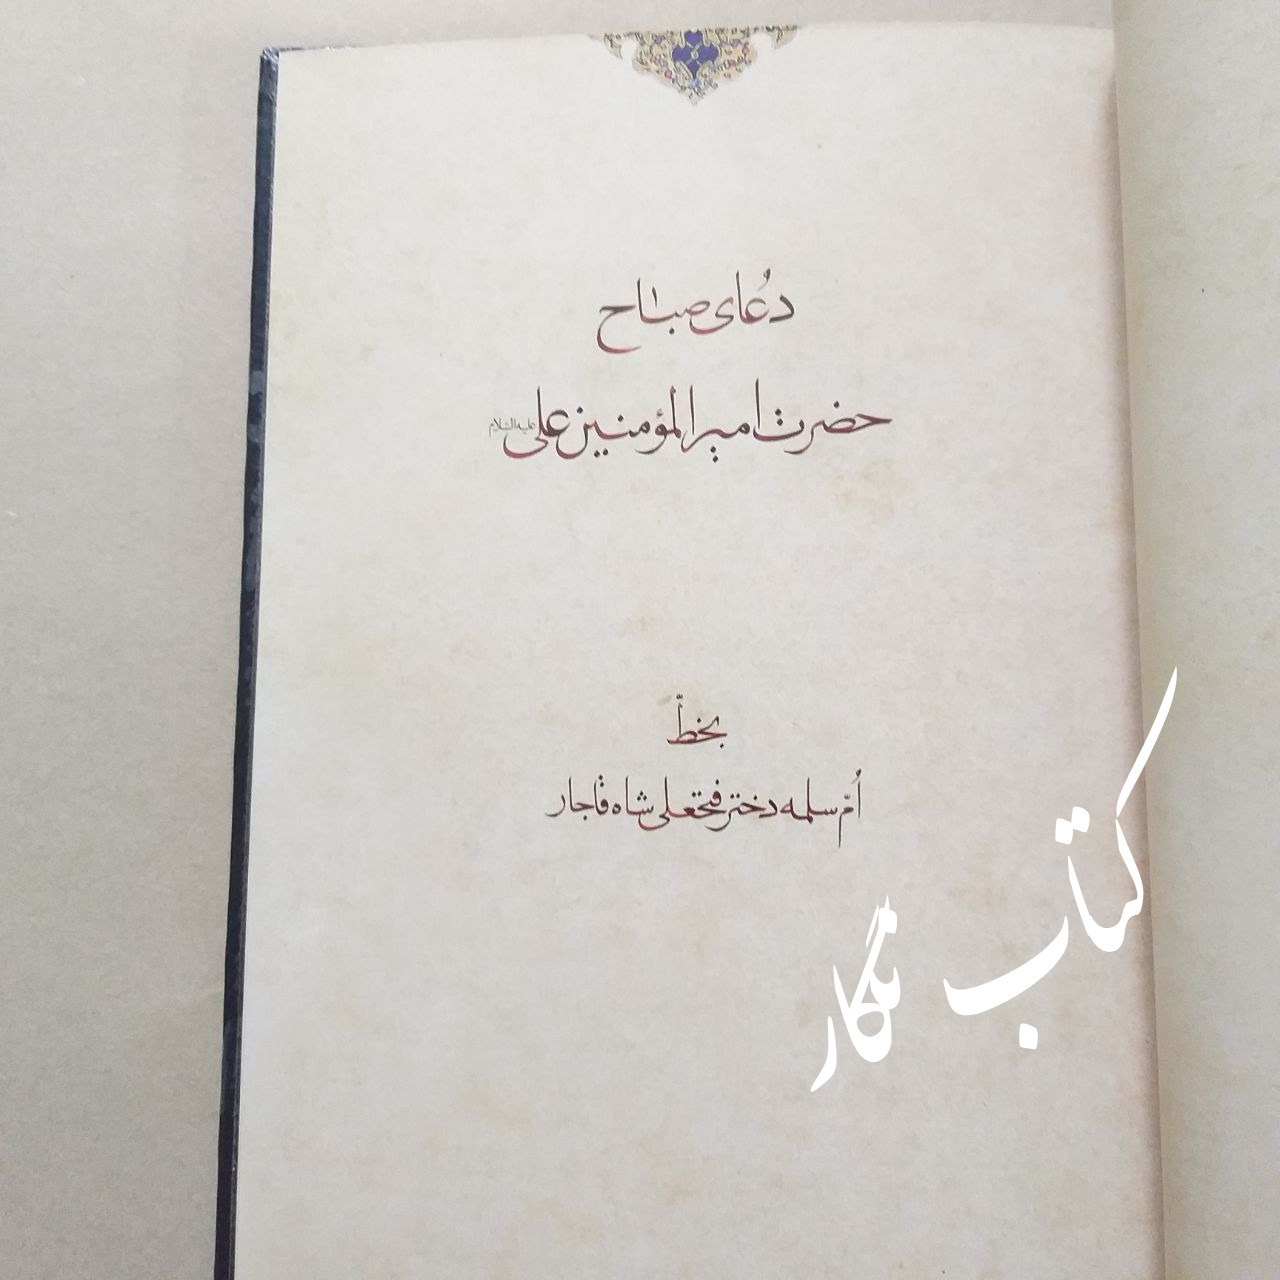 دُعای صباح
حضرت امیرالمؤمنین علی علیه‌السلام
بخطّ
اُمّ سلمه دختر فتحعلی شاه قاجار
کتاب نگار